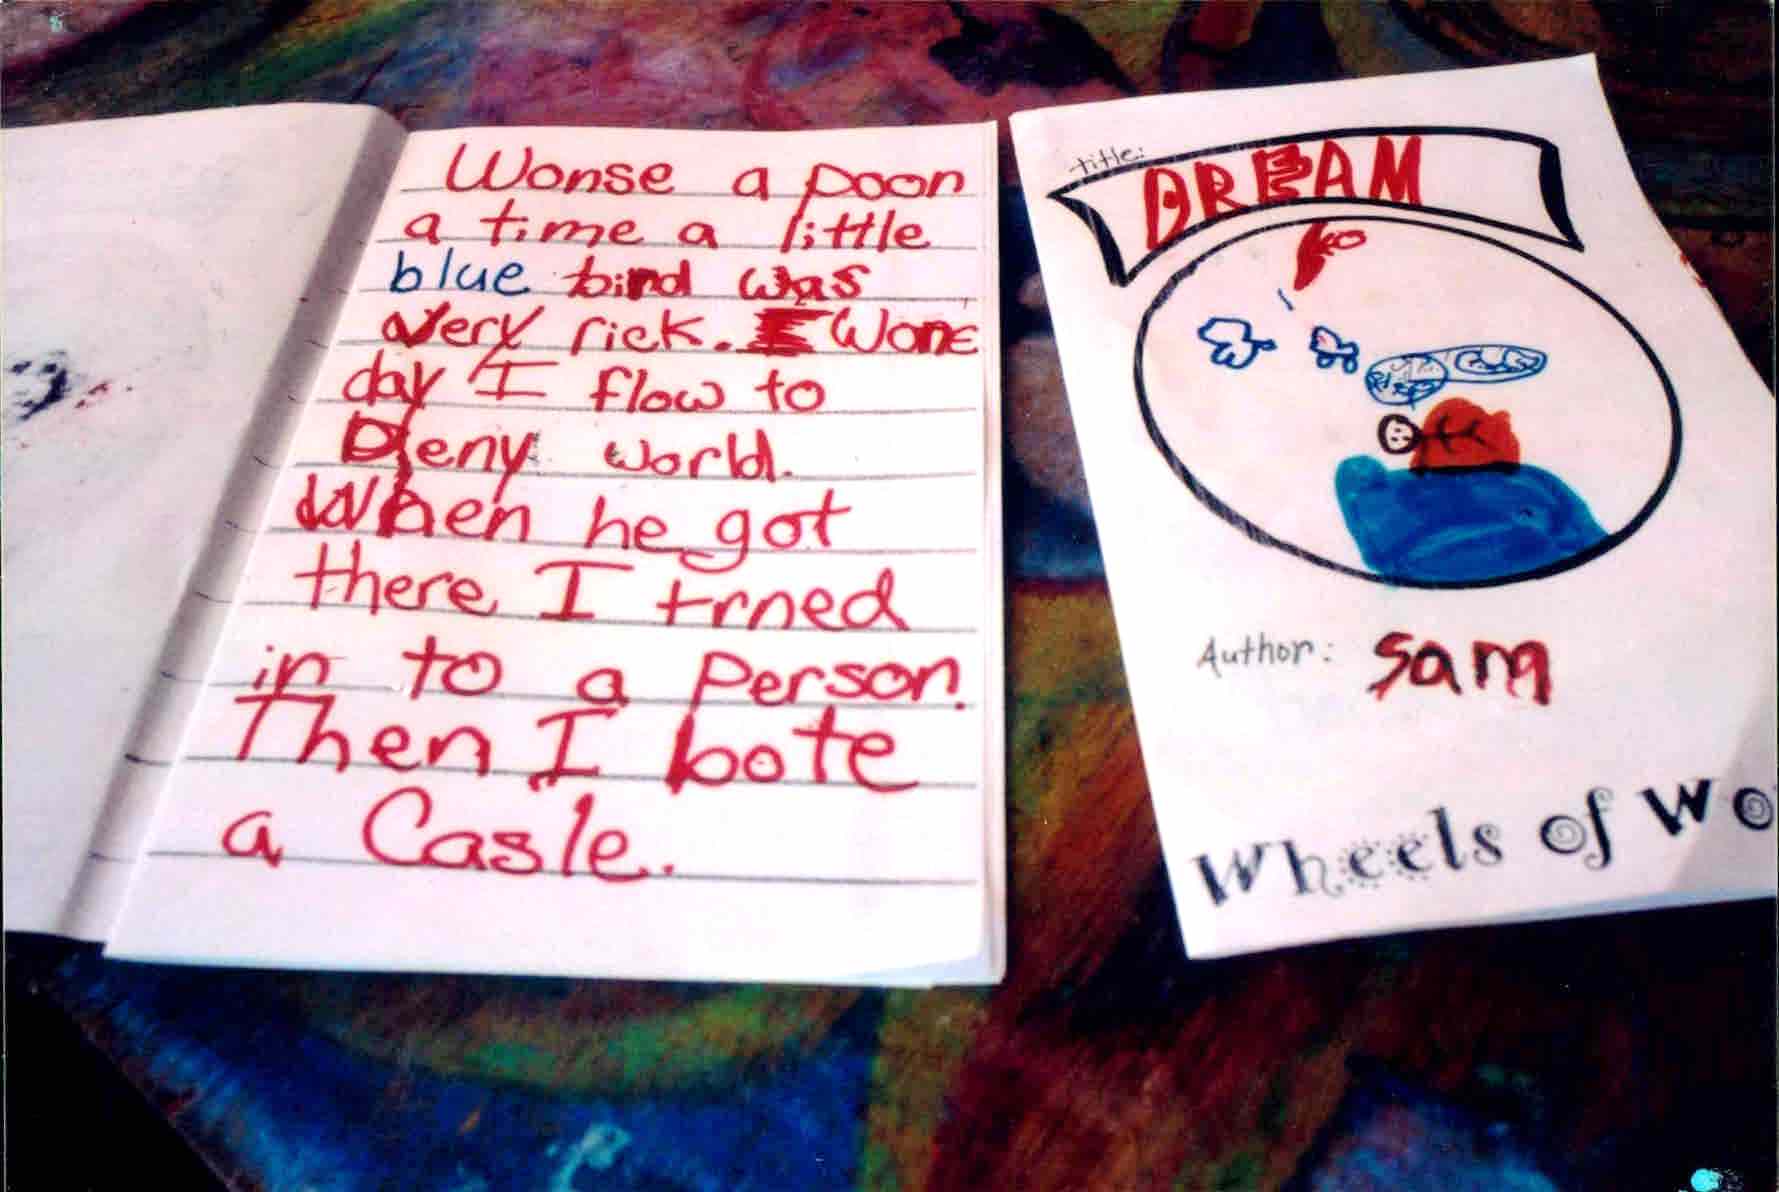 Wonse a poon
a time a little
blue bird was
very rick. Wone
day I flow to
Dieny world.
When he got
there I trned
in to a Person.
Then I bote
a Casle.
title:
DREAM
Author: Sam
Wheels of Wo